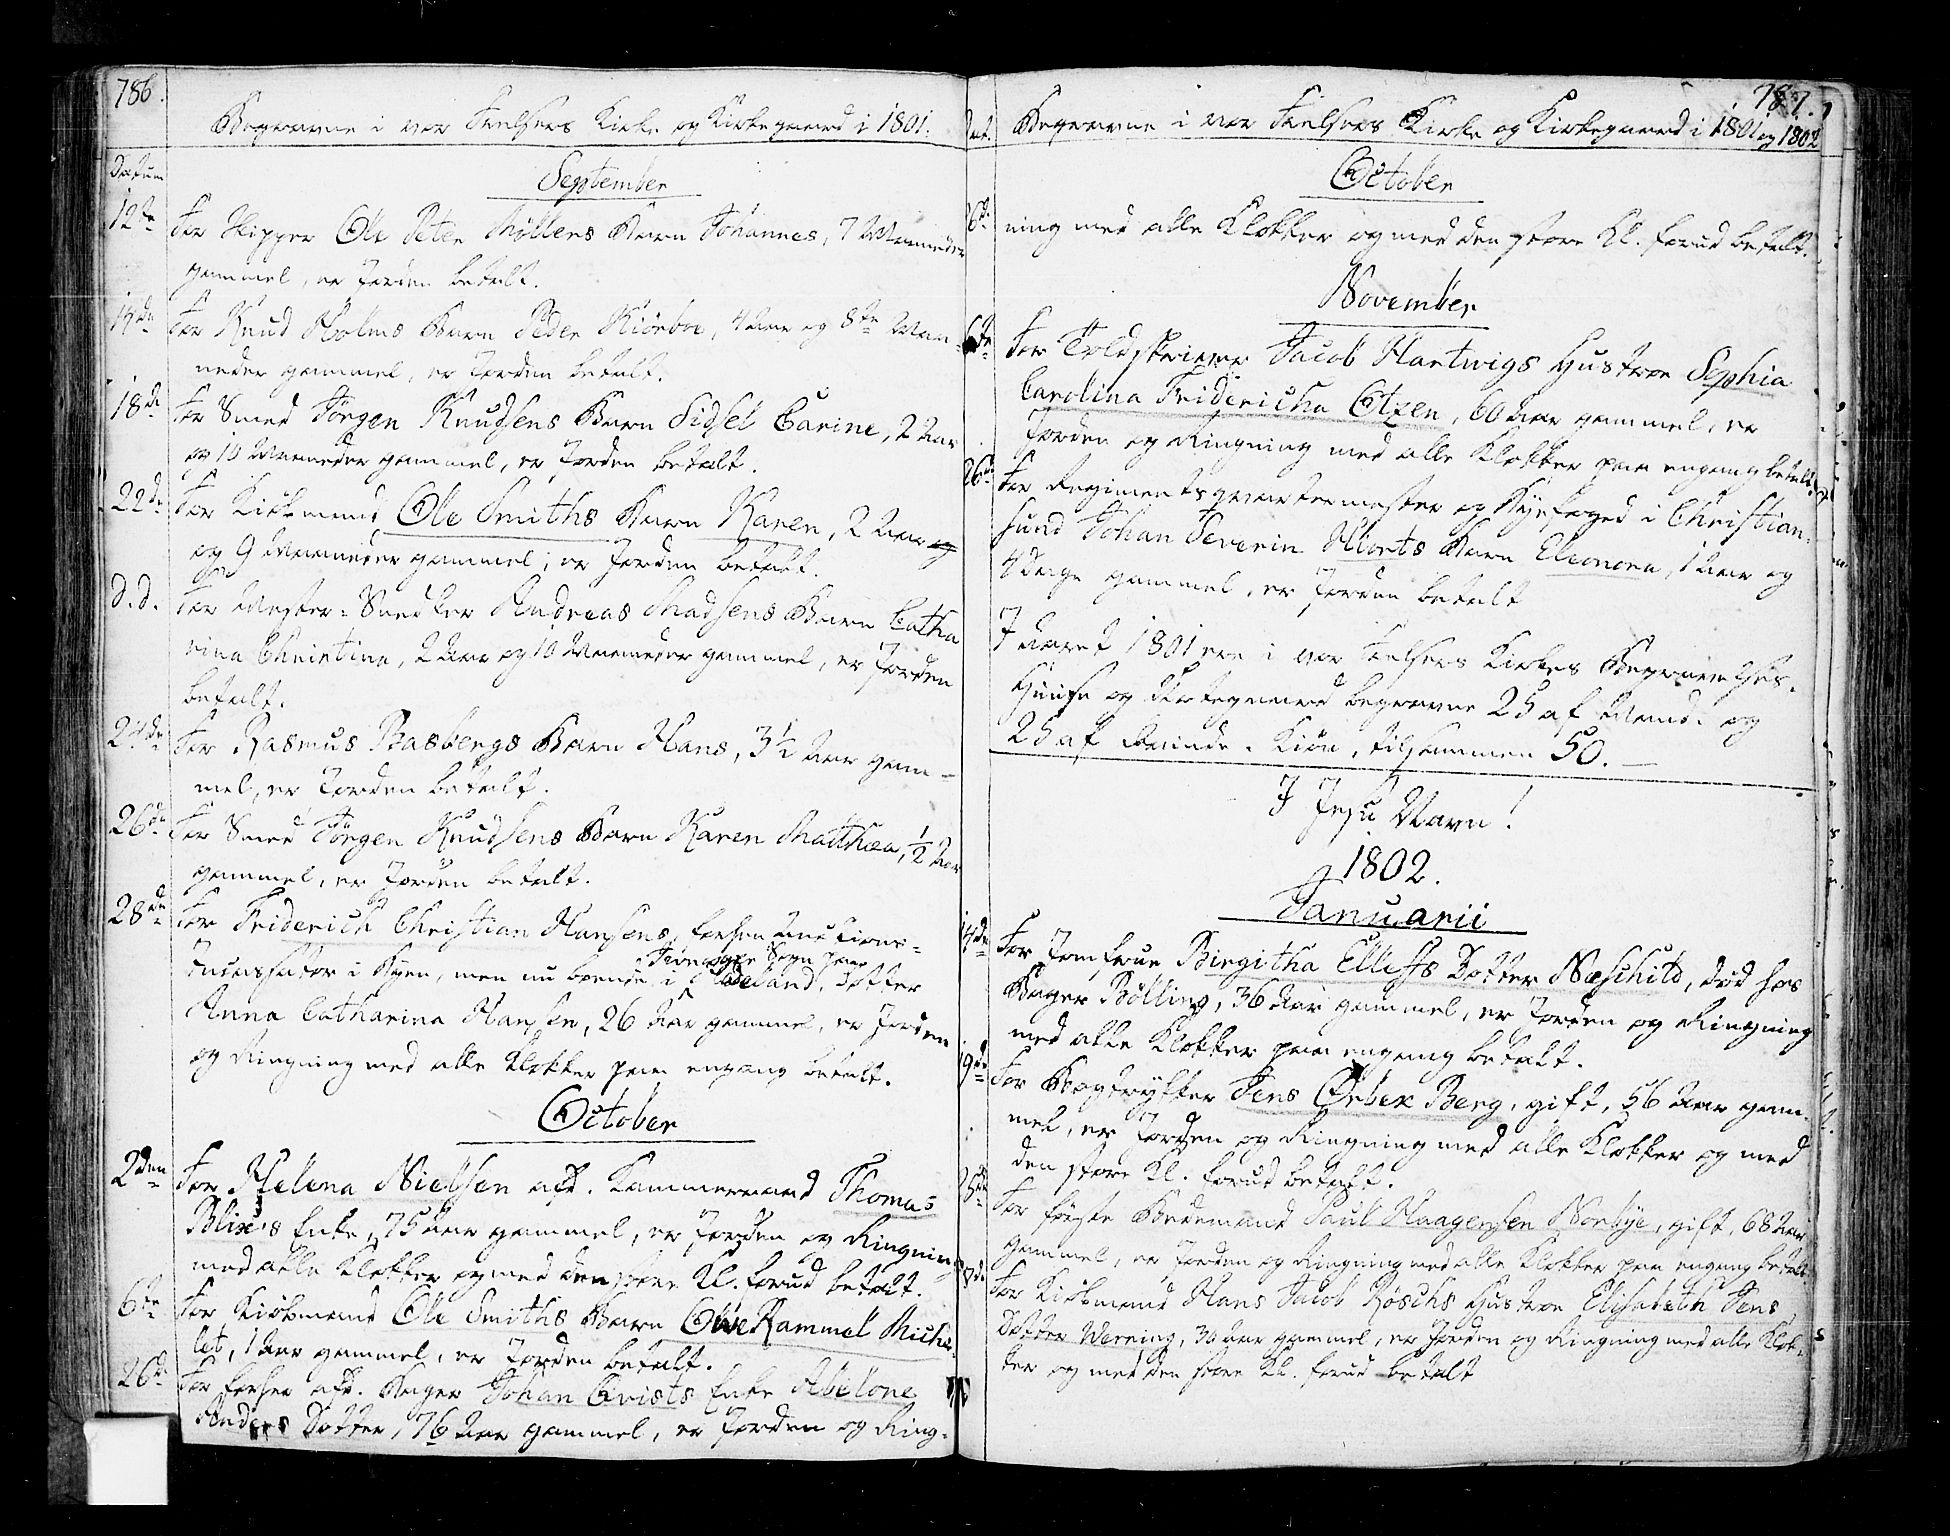 786.
Begravne i vor Frelsers Kirke og Kirkegaard i 1801.
Datum
September
12te For Skipper Ole Peter Møllers Barn Johannes, 7 Maaneder
gammel, er Jorden betalt.
14de For Knud Holms Barn Peder Kiørboe, 4 Aar og 8te Maa-
neder gammel, er Jorden betalt.
18de For Smed Jørgen Knudsens Barn Sidsel Carine, 2 Aar
og 10 Maaneder gammel, er Jorden betalt.
22de For Kiøbmand Ole Smiths Barn Karen, 2 Aar og
og 9 Maaneder gammel, er Jorden betalt.
d.d. For Mester-Snedker Andreas Madsens Barn Catha
rina Christina, 2 Aar og 10 Maaneder gammel, er Jorden
betalt.
24de For Rasmus Basbergs Barn Hans, 3½ Aar gam-
mel, er Jorden betalt.
26de For Smed Jørgen Knudsens Barn Karen Mathea, ½ Aar
gammel, er Jorden betalt.
28de For Friderich Christian Hansens, forhen Auctions-
i Byen, men nu boende i Sogn paa
land, Dotter
Anna Catharina Hansen, 26 Aar gammel, er Jorden
og Ringning med alle Klokker paa engang betalt.
October
2den For Helena Nielsen afd. Kammerraad Thomas
Blix's Enke, 75 Aar gammel, er Jorden og Ringning
med alle Klokker og med den store Kl. forud betalt.
6te For Kiøbmand Ole Smiths Barn Owe Rammel Miche
let, 1 Aar gammel, er Jorden betalt.
26de For forhen afd. Bager Johan Qvists Enke Abelone
Anders Dotter, 76 Aar gammel, er Jorden og Ring-
787.
Dat. Begravne i vor Frelsers Kirke og Kirkegaard i 1801 og 1802
October
26de ning med alle Klokker og med den store Kl. forud betalt.
November
6te For Toldskriver Jacob Hartwigs Hustroe Sophia
Carolina Fridericha Otzen, 60 Aar gammel, er
Jorden og Ringning med alle Klokker paa engang betalt.
26de For Regimentsqvarteermester og Byefoged i Christian-
sund Johan Severin Hiorts Barn Eleonora, 1 Aar og
4 Dage gammel, er Jorden betalt
I Aaret 1801 ere i vor Frelsers Kirkes Begravelses-
Huuse og Kirkegaard begravne 25 af Mand- og
25 af Qvinde-Kiøn, tilsammen 50.
I Jesu Navn!
1802.
Januarii
14de For Jomfrue Birgitha Ellefs Dotter Næschild, død hos
Bager Bølling, 36 Aar gammel, er Jorden og Ringning
med alle Klokker paa engang betalt.
19de For Bogtrykker Jens Ørbek Berg, gift, 56 Aar gam-
mel, er Jorden og Ringning med alle Klokker og med
den store Kl. forud betalt.
25de For første Bedemand Paul Haagensen Norbye, gift, 68 Aar
gammel, er Jorden og Ringning med alle Klokker paa engang betalt
For Kiøbmand Hans Jacob Røschs Hustroe Elisabeth Jens
Dotter Werning, 30 Aar gammel, er Jorden og Ringning med alle Klok-
ker og med den store Kl. forud betalt